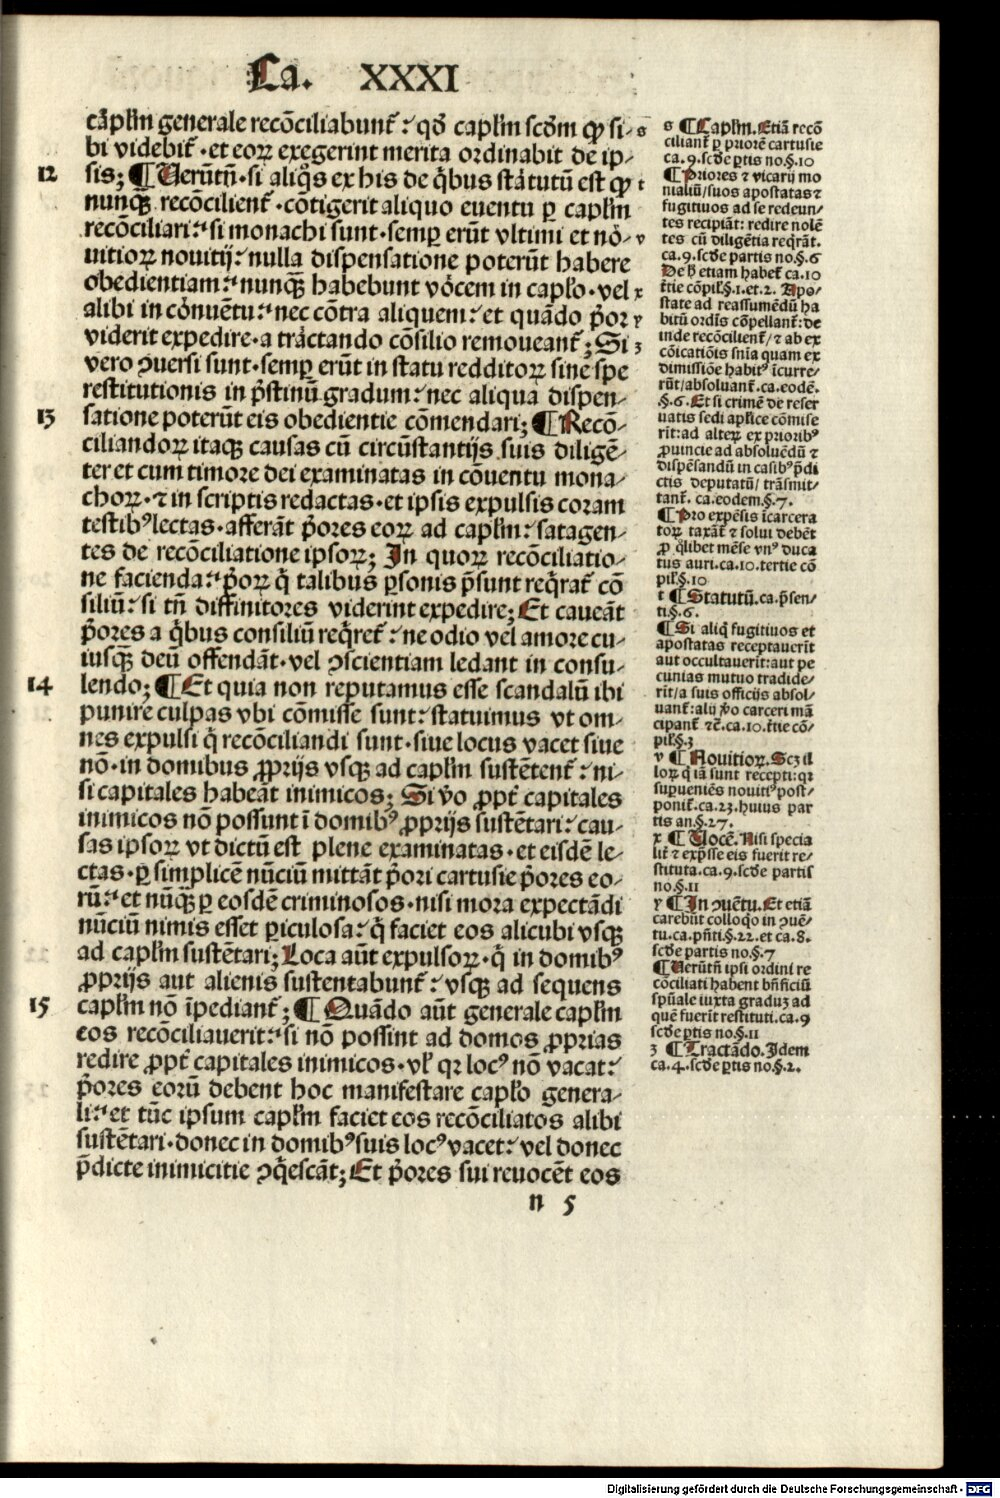 Ca. XXXI
cāplm̄ generale recōciliabunt᷑ : qd̓ caplm̄ scd̓m ꝙ si- s
bi videbit᷑ · et eoꝝ exegerint merita ordinabit de ip-
12 sis; ¶ Uerūtn̄ · si aliq̓s ex his de q̓bus stātutū est ꝙ t
nunqꝫ̄ recōcilient᷑ · cōtigerit aliquo euentu ꝑ caplm̄
recōciliari : si monachi sunt · semꝑ erūt vltimi et nō- v
uitioꝝ nouitij : nulla dispensatione poterūt habere
obedientiam : nunqꝫ̄ habebunt vōcem in caplo · vel x
alibi in cōnuētu : nec cōtra aliquem : et quādo p̄or y
viderit expedire · a trāctando cōsilio remoueant᷑; Si z
vero ꝯuersi sunt · semꝑ erūt in statu redditoꝝ sine spe
restitutionis in p̄stinū gradum : nec aliqua dispen-
13 satione poterūt eis obedientie cōmendari; ¶ Recō-
ciliandoꝝ itaqꝫ causas cū circūstantijs suis diligē-
ter et cum timore dei examinatas in cōuentu mona-
choꝝ · ⁊ in scriptis redactas · et ipsis expulsis coram
testibꝰ lectas · afferāt p̄ores eoꝝ ad caplm̄ : satagen-
tes de recōciliatione ipsoꝝ; In quoꝝ recōciliatio-
ne facienda : p̄oꝝ q̄ talibus ꝑsonis p̄sunt req̓rat᷑ cō
siliū : si tn̄ diffinitores viderint expedire; Et caueāt
p̄ores a q̓bus consiliū req̓ret᷑ : ne odio vel amore cu-
iusqꝫ̄ deū offendāt · vel ꝯscientiam ledant in consu-
14 lendo; ¶ Et quia non reputamus esse scandalū ibi
punire culpas vbi cōmisse sunt : statuimus vt om-
nes expulsi q̄ recōciliandi sunt · siue locus vacet siue
nō · in domibus ꝓprijs vsqꝫ ad caplm̄ sustētent᷑ : ni-
si capitales habeāt inimicos; Si v̓o ꝓpt̓ capitales
inimicos nō possunt ī domibꝰ ꝓprijs sustētari : cau-
sas ipsoꝝ vt dictū est plene examinatas · et eisdē le-
ctas · ꝑ simplicē nūciū mittāt p̄ori cartusie p̄ores eo-
rū : et nūqꝫ̄ ꝑ eosdē criminosos · nisi mora expectādi
nūciū nimis esset ꝑiculosa : q̄ faciet eos alicubi vsqꝫ
ad caplm̄ sustētari; Loca aūt expulsoꝝ · q̄ in domibꝰ
ꝓprijs aut alienis sustentabunt᷑ : vsqꝫ ad sequens
15 caplm̄ nō īpediant᷑; ¶ Quādo aūt generale caplm̄
eos recōciliauerit : si nō possint ad domos ꝓprias
redire ꝓpt̓ capitales inimicos · vl̓ qꝛ locꝰ nō vacat :
p̄ores eorū debent hoc manifestare caplo genera-
li : et tūc ipsum caplm̄ faciet eos recōciliatos alibi
sustētari · donec in domibꝰ suis locꝰ vacet : vel donec
p̄dicte inimicitie ꝯq̓escāt; Et p̄ores sui reuocēt eos
n 5
s ¶ Caplm̄. Etiā recō
ciliant᷑ ꝑ priorē cartusie
ca.9.scd̓e ꝑtis no.§.10
¶ Priores ⁊ vicarij mo
nialiū/suos apostatas ⁊
fugitiuos ad se redeun-
tes recipiāt: redire nolē
tes cū diligētia req̓rāt.
ca.9.scd̓e partis no.§.6
De h̓ etiam habet᷑ ca.10
t̓tie cōpil̓.§.1.et.2. Apo-
state ad reassumēdū ha
bitū ordīs cōpellant᷑: de
inde recōcilient᷑/⁊ ab ex
cōicatiōis sn̄ia quam ex
dimissiōe habitꝰ īcurre-
rūt/absoluant᷑. ca.eodē.
.§.6. Et si crimē de reser
uatis sedi aplice cōmise
rīt: ad alteꝝ ex prioribꝰ
ꝓuincie ad absoluēdū ⁊
dispēsandū in casibꝰ p̄di
ctis deputatū/ trāsmit-
tant᷑. ca.eodem.§.7.
¶ Pro expēsis īcarcera
toꝝ taxāt᷑ ⁊ solui debēt
ꝓ q̓libet mēse vnꝰ duca
tus auri. ca.10. tertie cō
pil̓.§.10
t ¶ Statutū. ca.p̄sen-
ti.§.6.
¶ Si aliq̓ fugitiuos et
apostatas receptauerīt
aut occultauerīt: aut pe
cunias mutuo tradide-
rīt/a suis officijs absol-
uant᷑: alij v̓o carceri mā
cipant᷑ ⁊c̄. ca.10.t̓tie cō-
pil̓.§.3
v ¶ Nouitioꝝ. Scꝫ il
loꝝ q̄ iā sunt recepti: qꝛ
suꝑueniēs nouitiꝰ post-
ponit᷑. ca.23. huius par
tis an.§.27.
x ¶ Uocē. Nisi specia
lit̓ ⁊ exp̄sse eis fuerit re-
stituta. ca.9. scd̓e partis
no.§.11
y ¶ In ꝯuētu. Et etiā
carebūt colloq̓o in ꝯuē-
tu. ca.pn̄ti.§.22. et ca.8.
scd̓e partis no.§.7
¶ Uerūtn̄ ipsi ordini re
cōciliati habent bn̄ficiū
spūale iuxta graduꝫ ad
quē fuerīt restituti. ca.9
scd̓e ꝑtis no.§.11
z ¶ Tractādo. Idem
ca.4. scd̓e ꝑtis no.§.2.
Digitalisierung gefördert durch die Deutsche Forschungsgemeinschaft - DFG